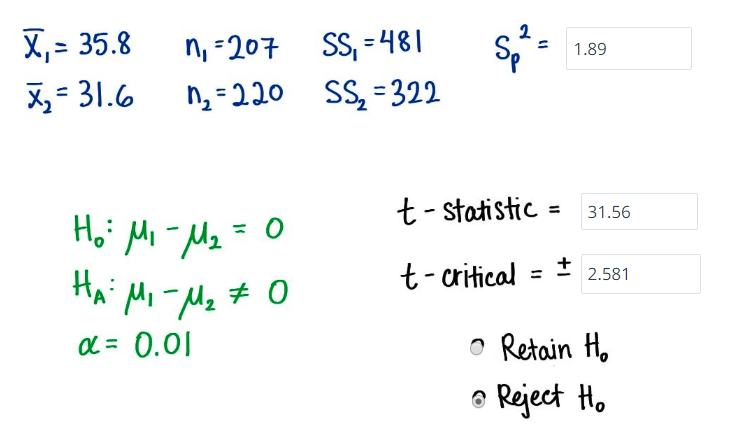 X̄₁ = 35.8 n₁ = 207 SS₁ = 481 Sₚ² = 1.89
X̄₂ = 31.6 n₂ = 220 SS₂ = 322
H₀: μ₁ - μ₂ = 0
H_A: μ₁ - μ₂ ≠ 0
α = 0.01
t - statistic = 31.56
t - critical = ± 2.581
Retain H₀
Reject H₀